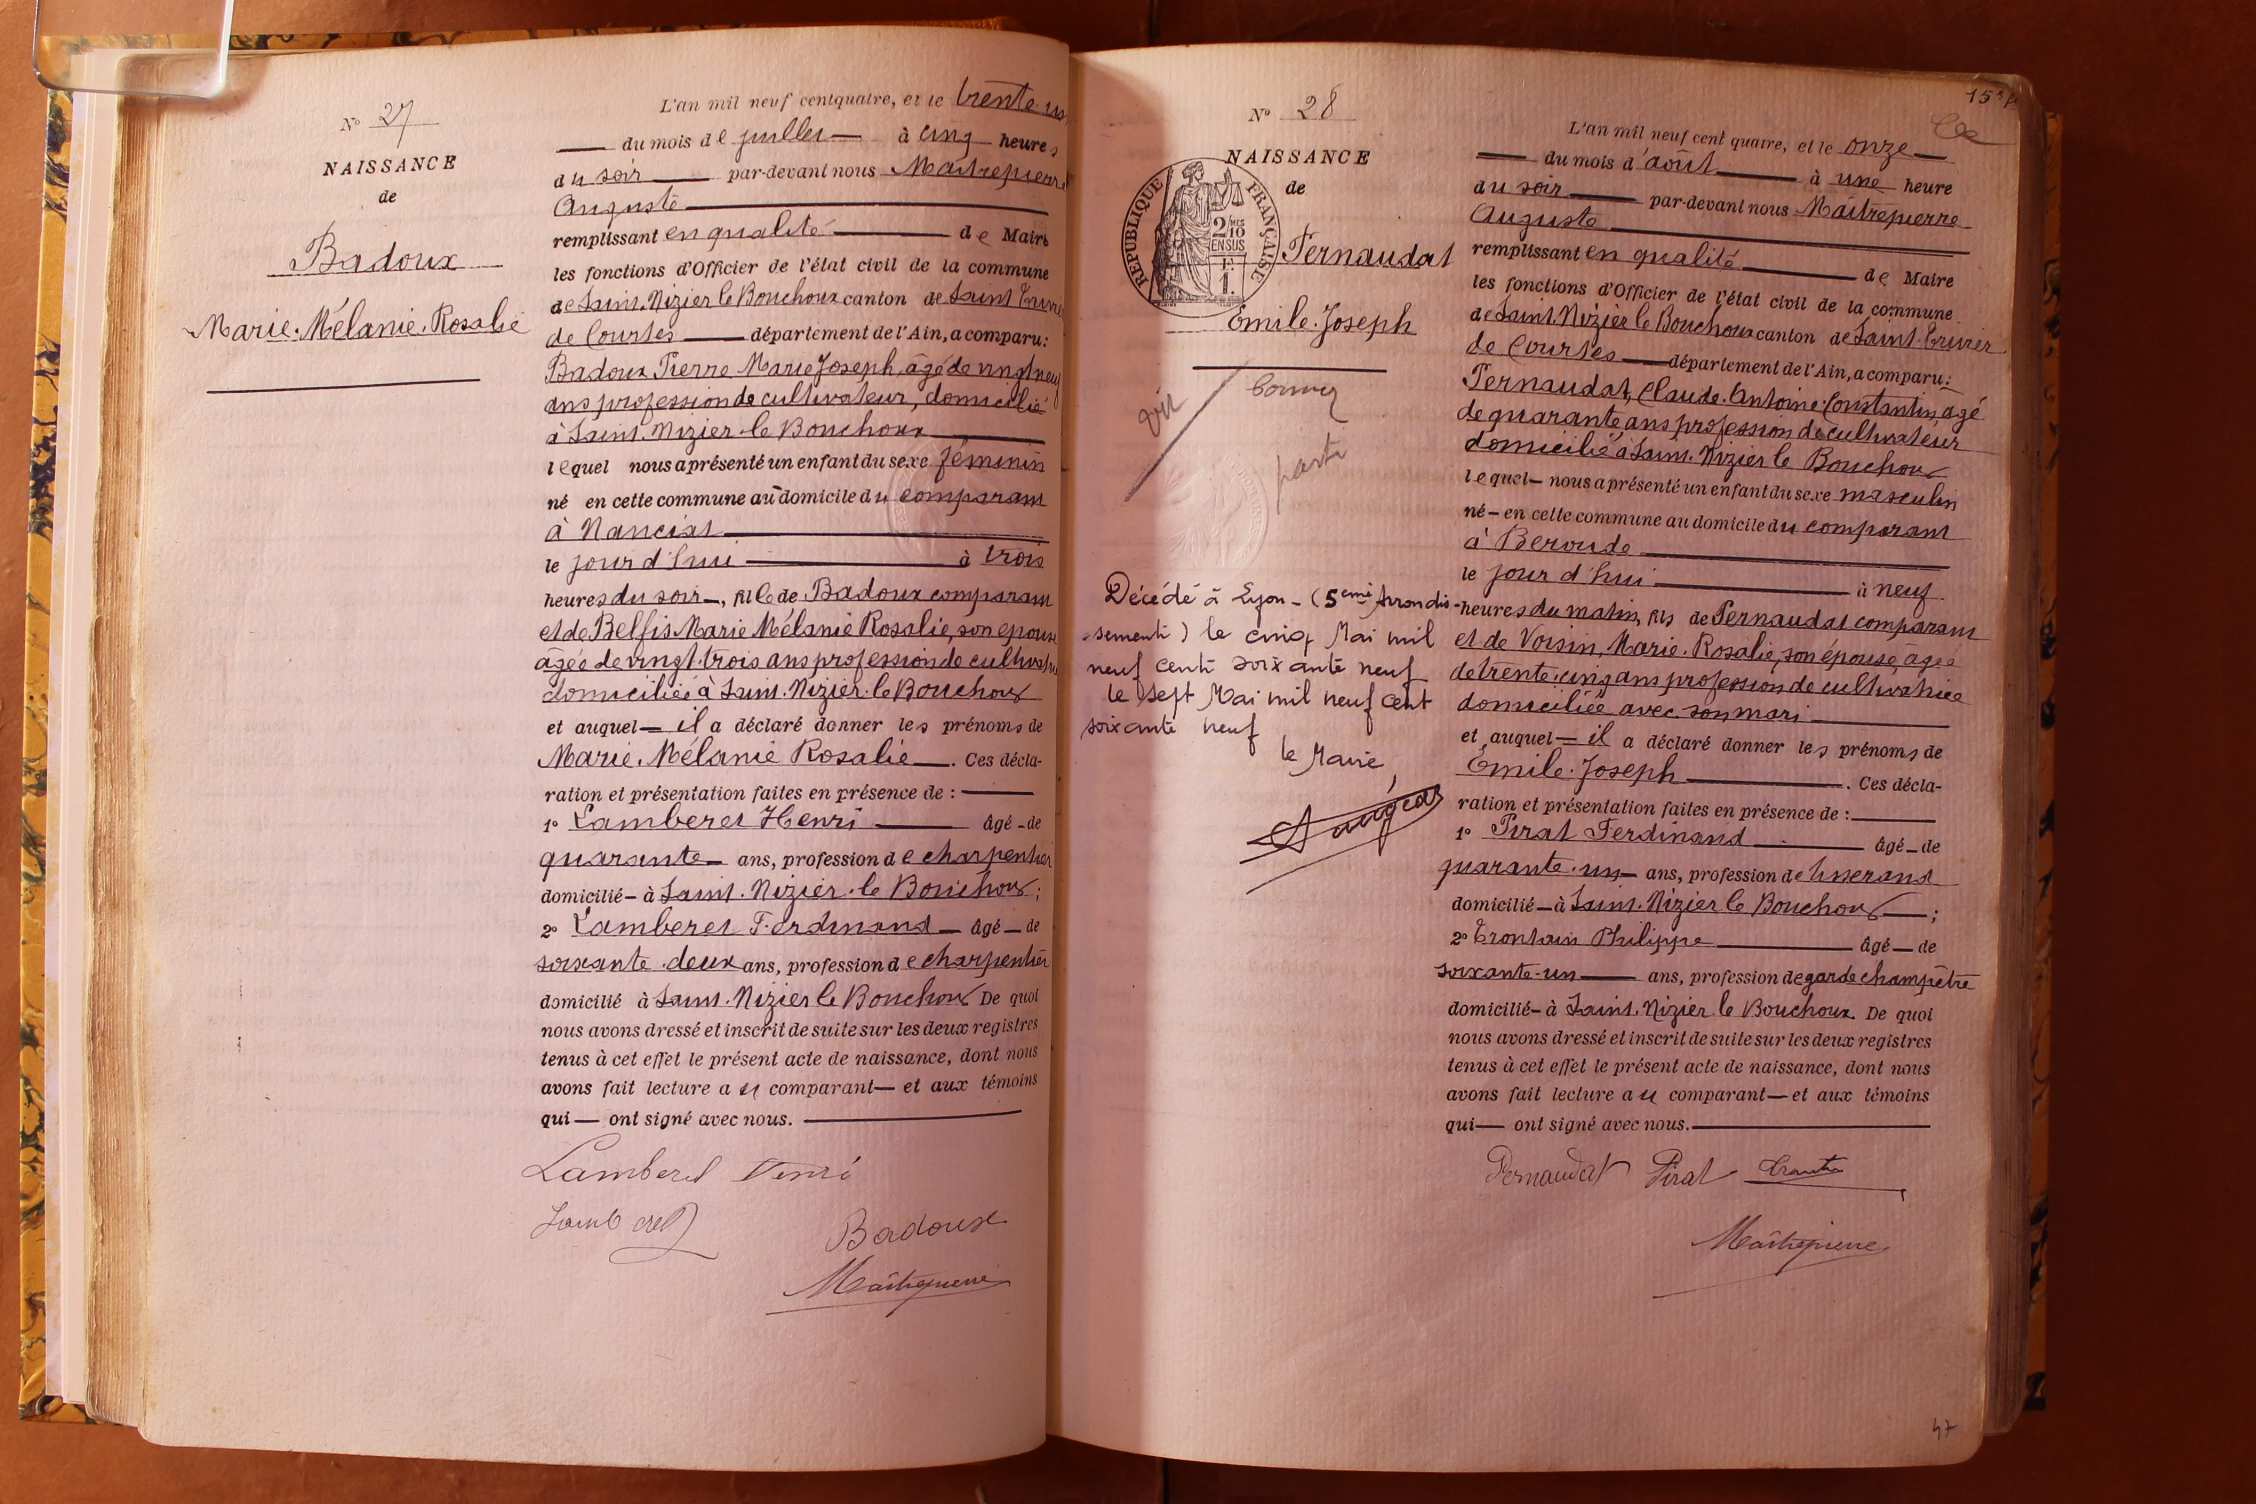 N° 27
NAISSANCE
de
Badoux
Marie. Mélanie. Rosalie
L'an mil neuf cent quatre, et le trente un
du mois de juillet à cinq heures
du soir par-devant nous Maîtrepierre
Auguste
remplissant en qualité de Maire
les fonctions d'Officier de l'état civil de la commune
de Saint. Nizier le Bouchoux canton de Saint Trivier
de Courtes département de l'Ain, a comparu:
Badoux Pierre Marie Joseph, âgé de vingt neuf
ans profession de cultivateur, domicilié
à Saint. Nizier. le Bouchoux
lequel nous a présenté un enfant du sexe féminin
né en cette commune au domicile du comparant
à Nanciat
le jour d'hui à trois
heures du soir, fille de Badoux comparant
et de Belfis Marie Mélanie Rosalie, son épouse
âgée de vingt. trois ans profession de cultivatrice
domiciliée à Saint. Nizier. le Bouchoux
et auquel il a déclaré donner les prénoms de
Marie. Mélanie Rosalie. Ces décla-
ration et présentation faites en présence de :
1° Lamberet Henri âgé de
quarante ans, profession de charpentier
domicilié à Saint. Nizier. le Bouchoux ;
2° Lamberet Ferdinand âgé de
soixante. deux ans, profession de charpentier
domicilié à Saint. Nizier le Bouchoux De quoi
nous avons dressé et inscrit de suite sur les deux registres
tenus à cet effet le présent acte de naissance, dont nous
avons fait lecture au comparant et aux témoins
qui ont signé avec nous.
Lamberet Henri
Lamberet
Badoux
Maîtrepierre
N° 28
NAISSANCE
de
REPUBLIQUE FRANÇAISE
2/10 MES
EN SUS
1F.
Pernaudat
Emile. Joseph
Décédé à Lyon - (5eme Arrondis-
sement) le cinq Mai mil
neuf cent soixante neuf
le sept Mai mil neuf cent
soixante neuf
le Maire,
L'an mil neuf cent quatre, et le onze
du mois d'août à une heure
du soir par-devant nous Maîtrepierre
Auguste
remplissant en qualité de Maire
les fonctions d'Officier de l'état civil de la commune
de Saint. Nizier le Bouchoux canton de Saint-Trivier
de Courtes département de l'Ain, a comparu:
Pernaudat, Claude. Antoine. Constantin agé
de quarante ans profession de cultivateur
domicilié à Saint. Nizier le Bouchoux
lequel nous a présenté un enfant du sexe masculin
né en cette commune au domicile du comparant
à Beroude
le jour d'hui à neuf
heures du matin, fils de Pernaudat comparant
et de Voisin, Marie. Rosalie, son épouse, âgée
de trente. cinq ans profession de cultivatrice
domiciliée avec son mari
et auquel il a déclaré donner les prénoms de
Emile. Joseph. Ces décla-
ration et présentation faites en présence de :
1° Pirat Ferdinand âgé de
quarante. un ans, profession de tisserand
domicilié à Saint. Nizier le Bouchoux ;
2° Trontain Philippe âgé de
soixante-un ans, profession de garde champêtre
domicilié à Saint. Nizier le Bouchoux. De quoi
nous avons dressé et inscrit de suite sur les deux registres
tenus à cet effet le présent acte de naissance, dont nous
avons fait lecture au comparant et aux témoins
qui ont signé avec nous.
Pernaudat Pirat
Maîtrepierre
47